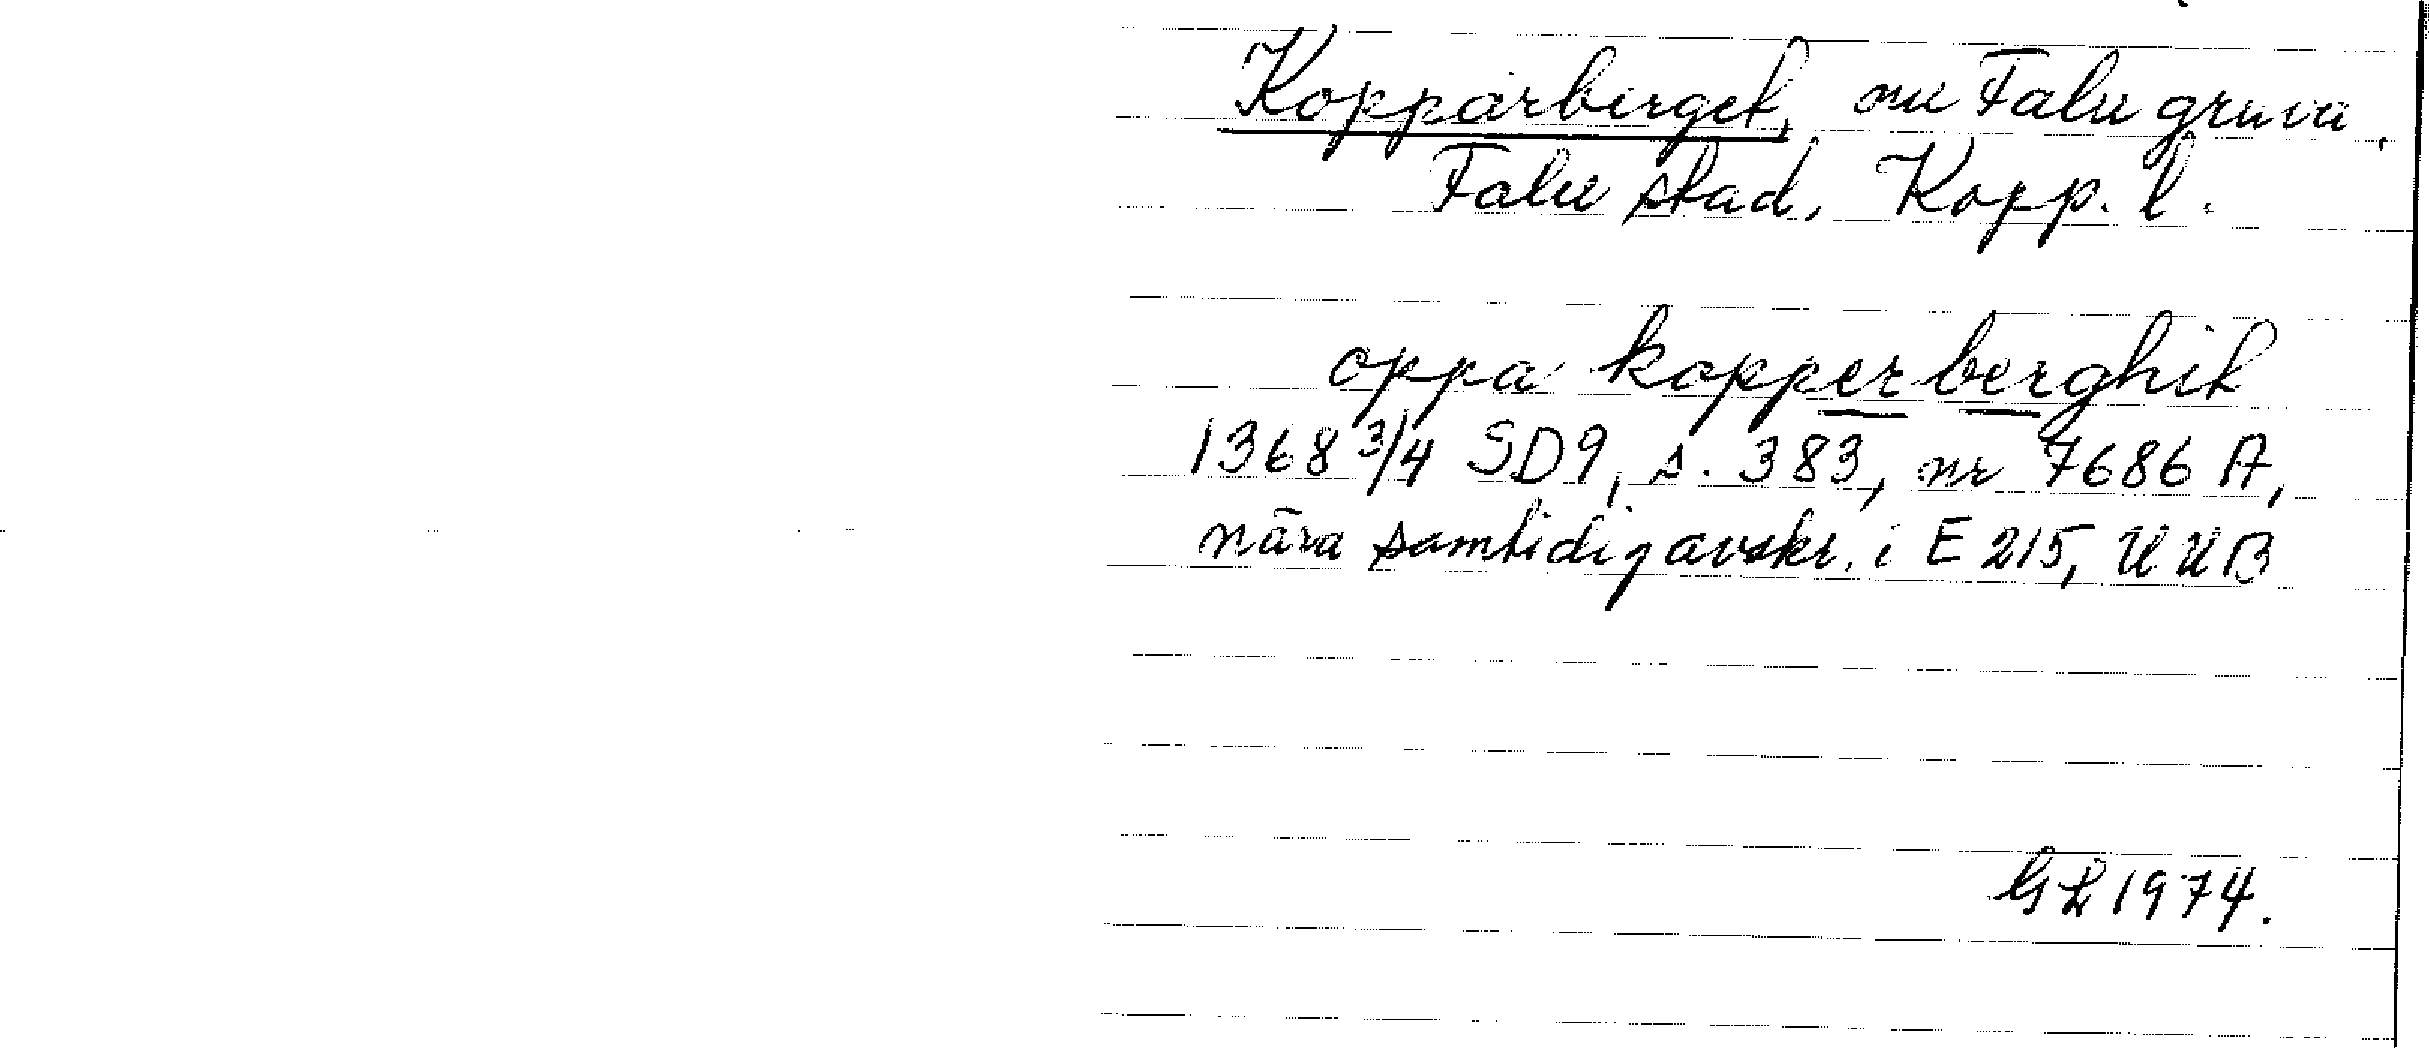 Kopparberget, nu Falu gruva,
Falu stad, Kopp. l.
oppa kopperberghit
1368 3/4 SD9, s. 383, nr 7686 A,
nära samtidig avskr. i E 215, UUB
GL 1974.